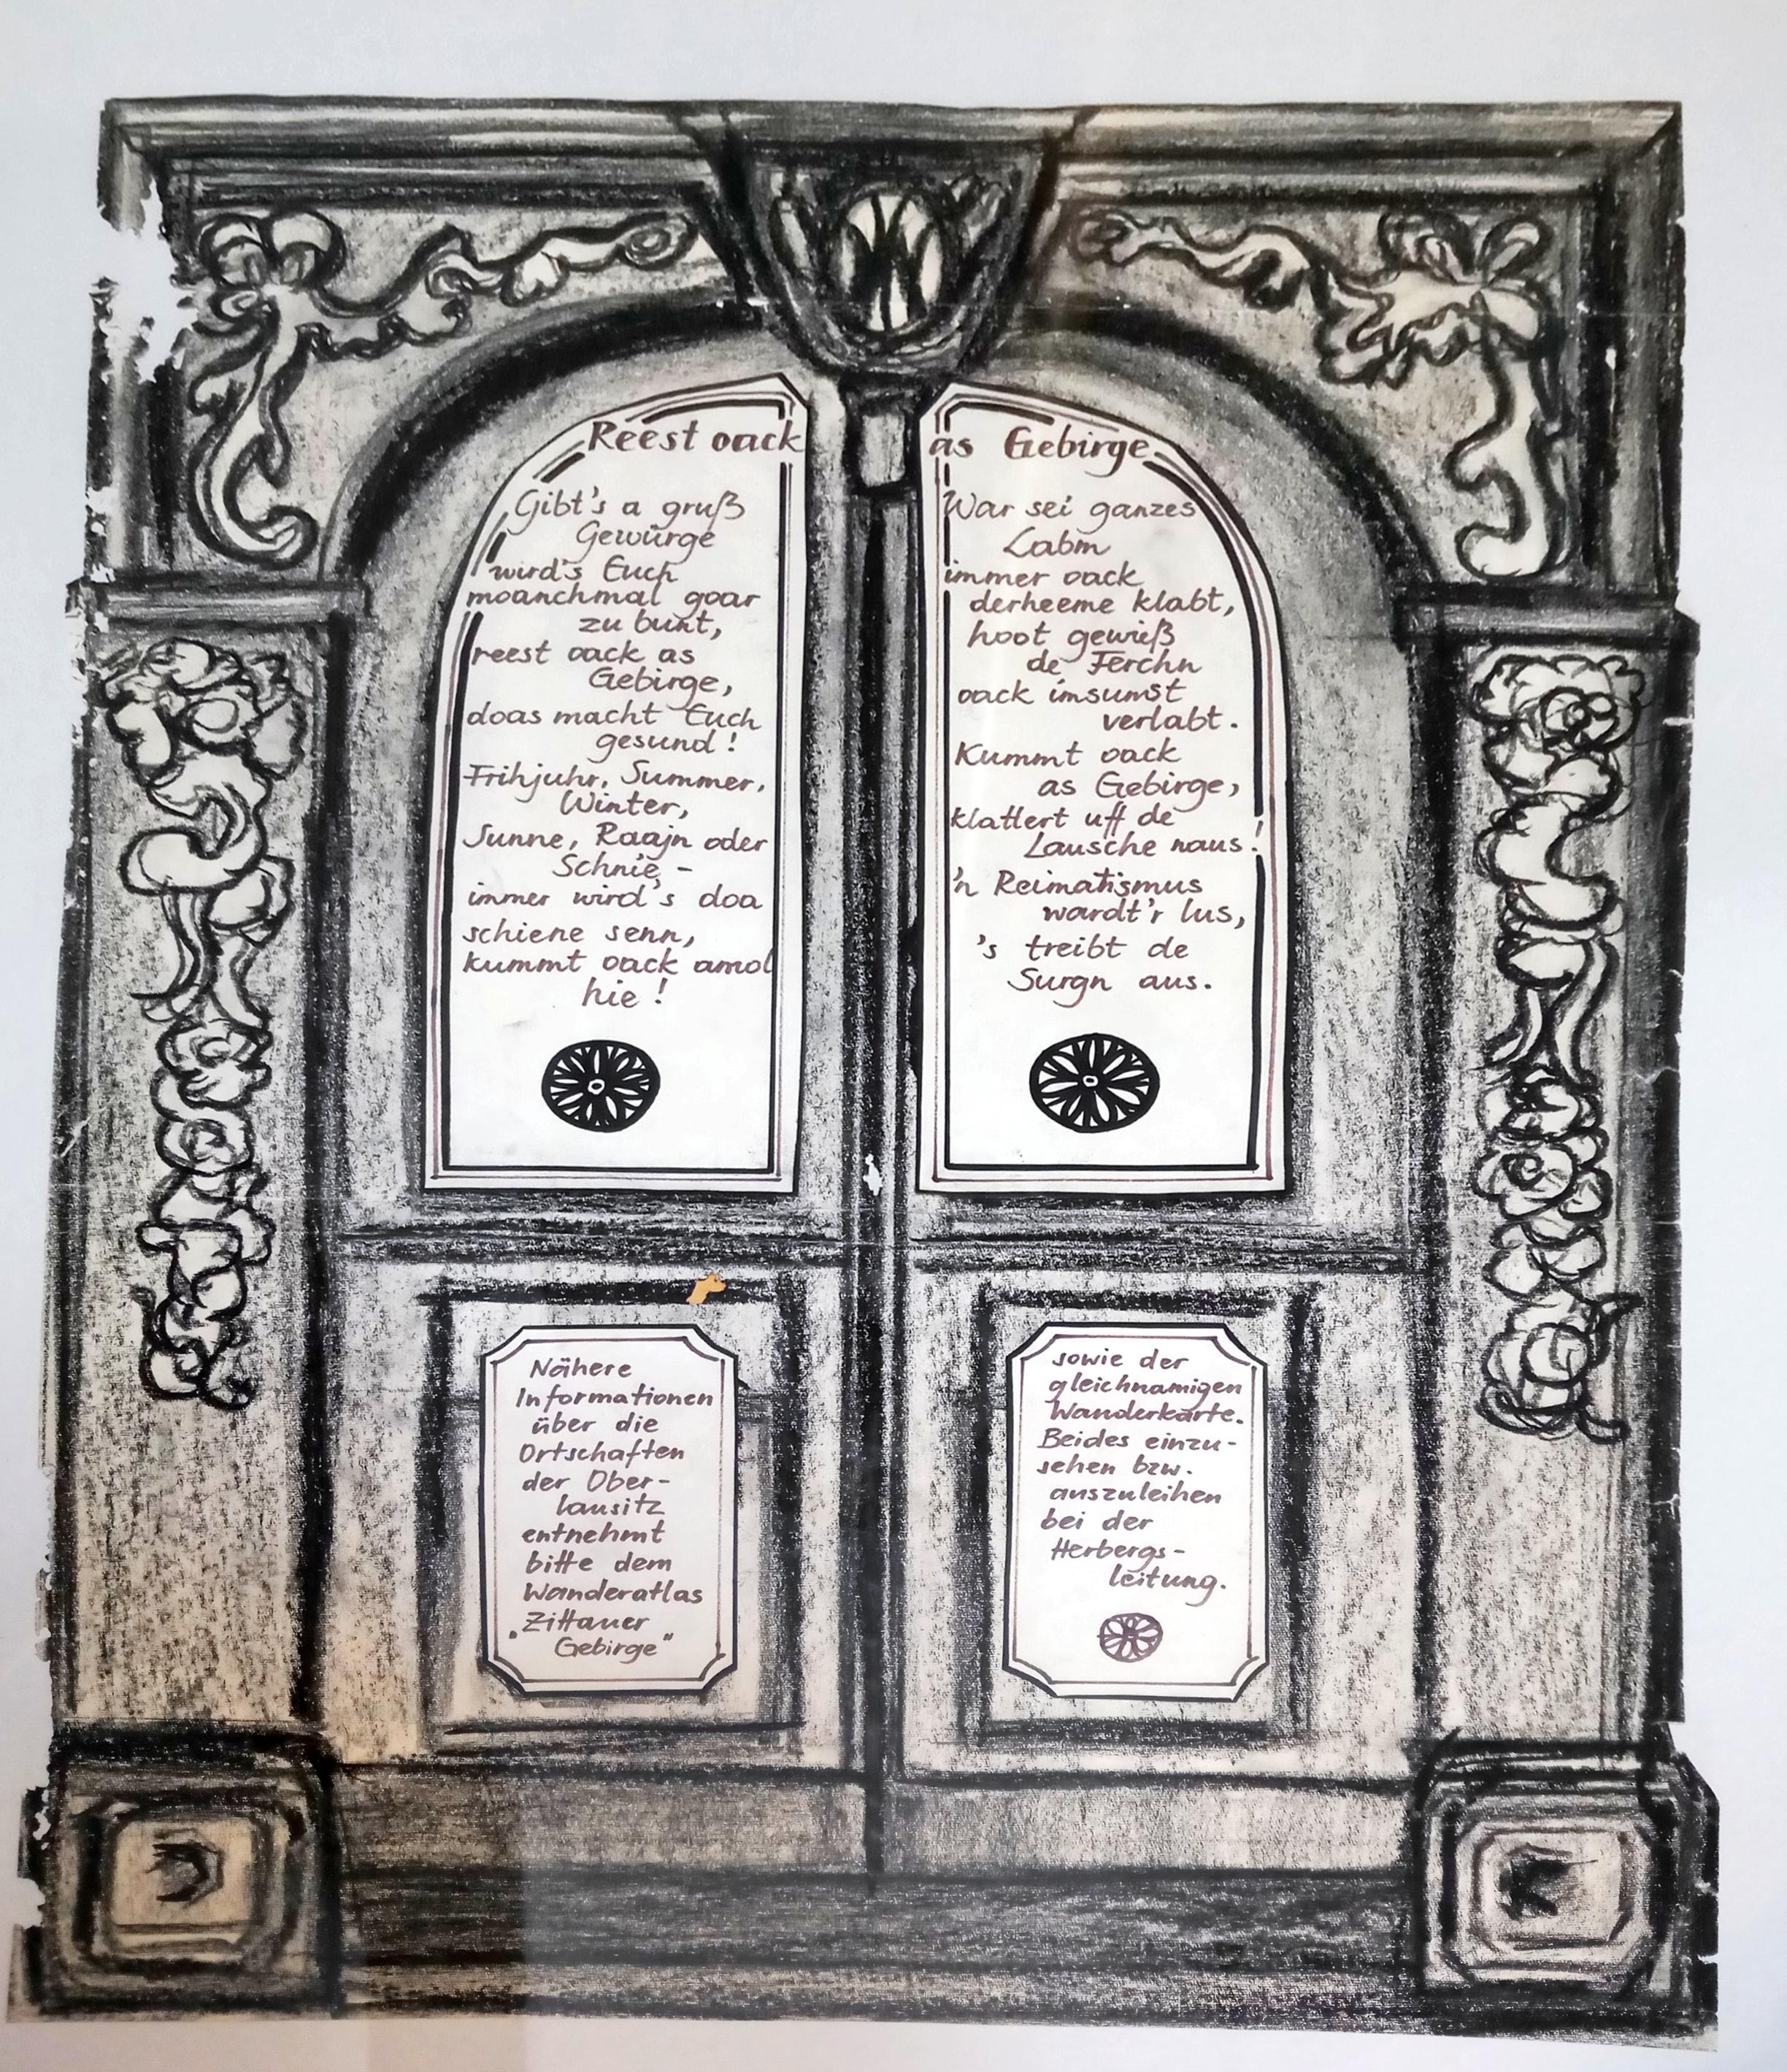 Reest oack
Gibt's a gruß
Gewürge
wird's Euch
moanchmal goar
zu bunt,
reest oack as
Gebirge,
doas macht Euch
gesund!
Frihjuhr, Summer,
Winter,
Sunne, Raajn oder
Schnie -
immer wird's doa
schiene senn,
kummt oack amol
hie!
as Gebirge
War sei ganzes
Labm
immer oack
derheeme klabt,
hoot gewieß
de Ferchn
oack imsumst
verlabt.
Kummt oack
as Gebirge,
klattert uff de
Lausche naus!
'n Reimatismus
wardt'r lus,
's treibt de
Surgn aus.
Nähere
Informationen
über die
Ortschaften
der Ober-
lausitz
entnehmt
bitte dem
Wanderatlas
"Zittauer
Gebirge"
sowie der
gleichnamigen
Wanderkarte.
Beides einzu-
sehen bzw.
auszuleihen
bei der
Herbergs-
leitung.